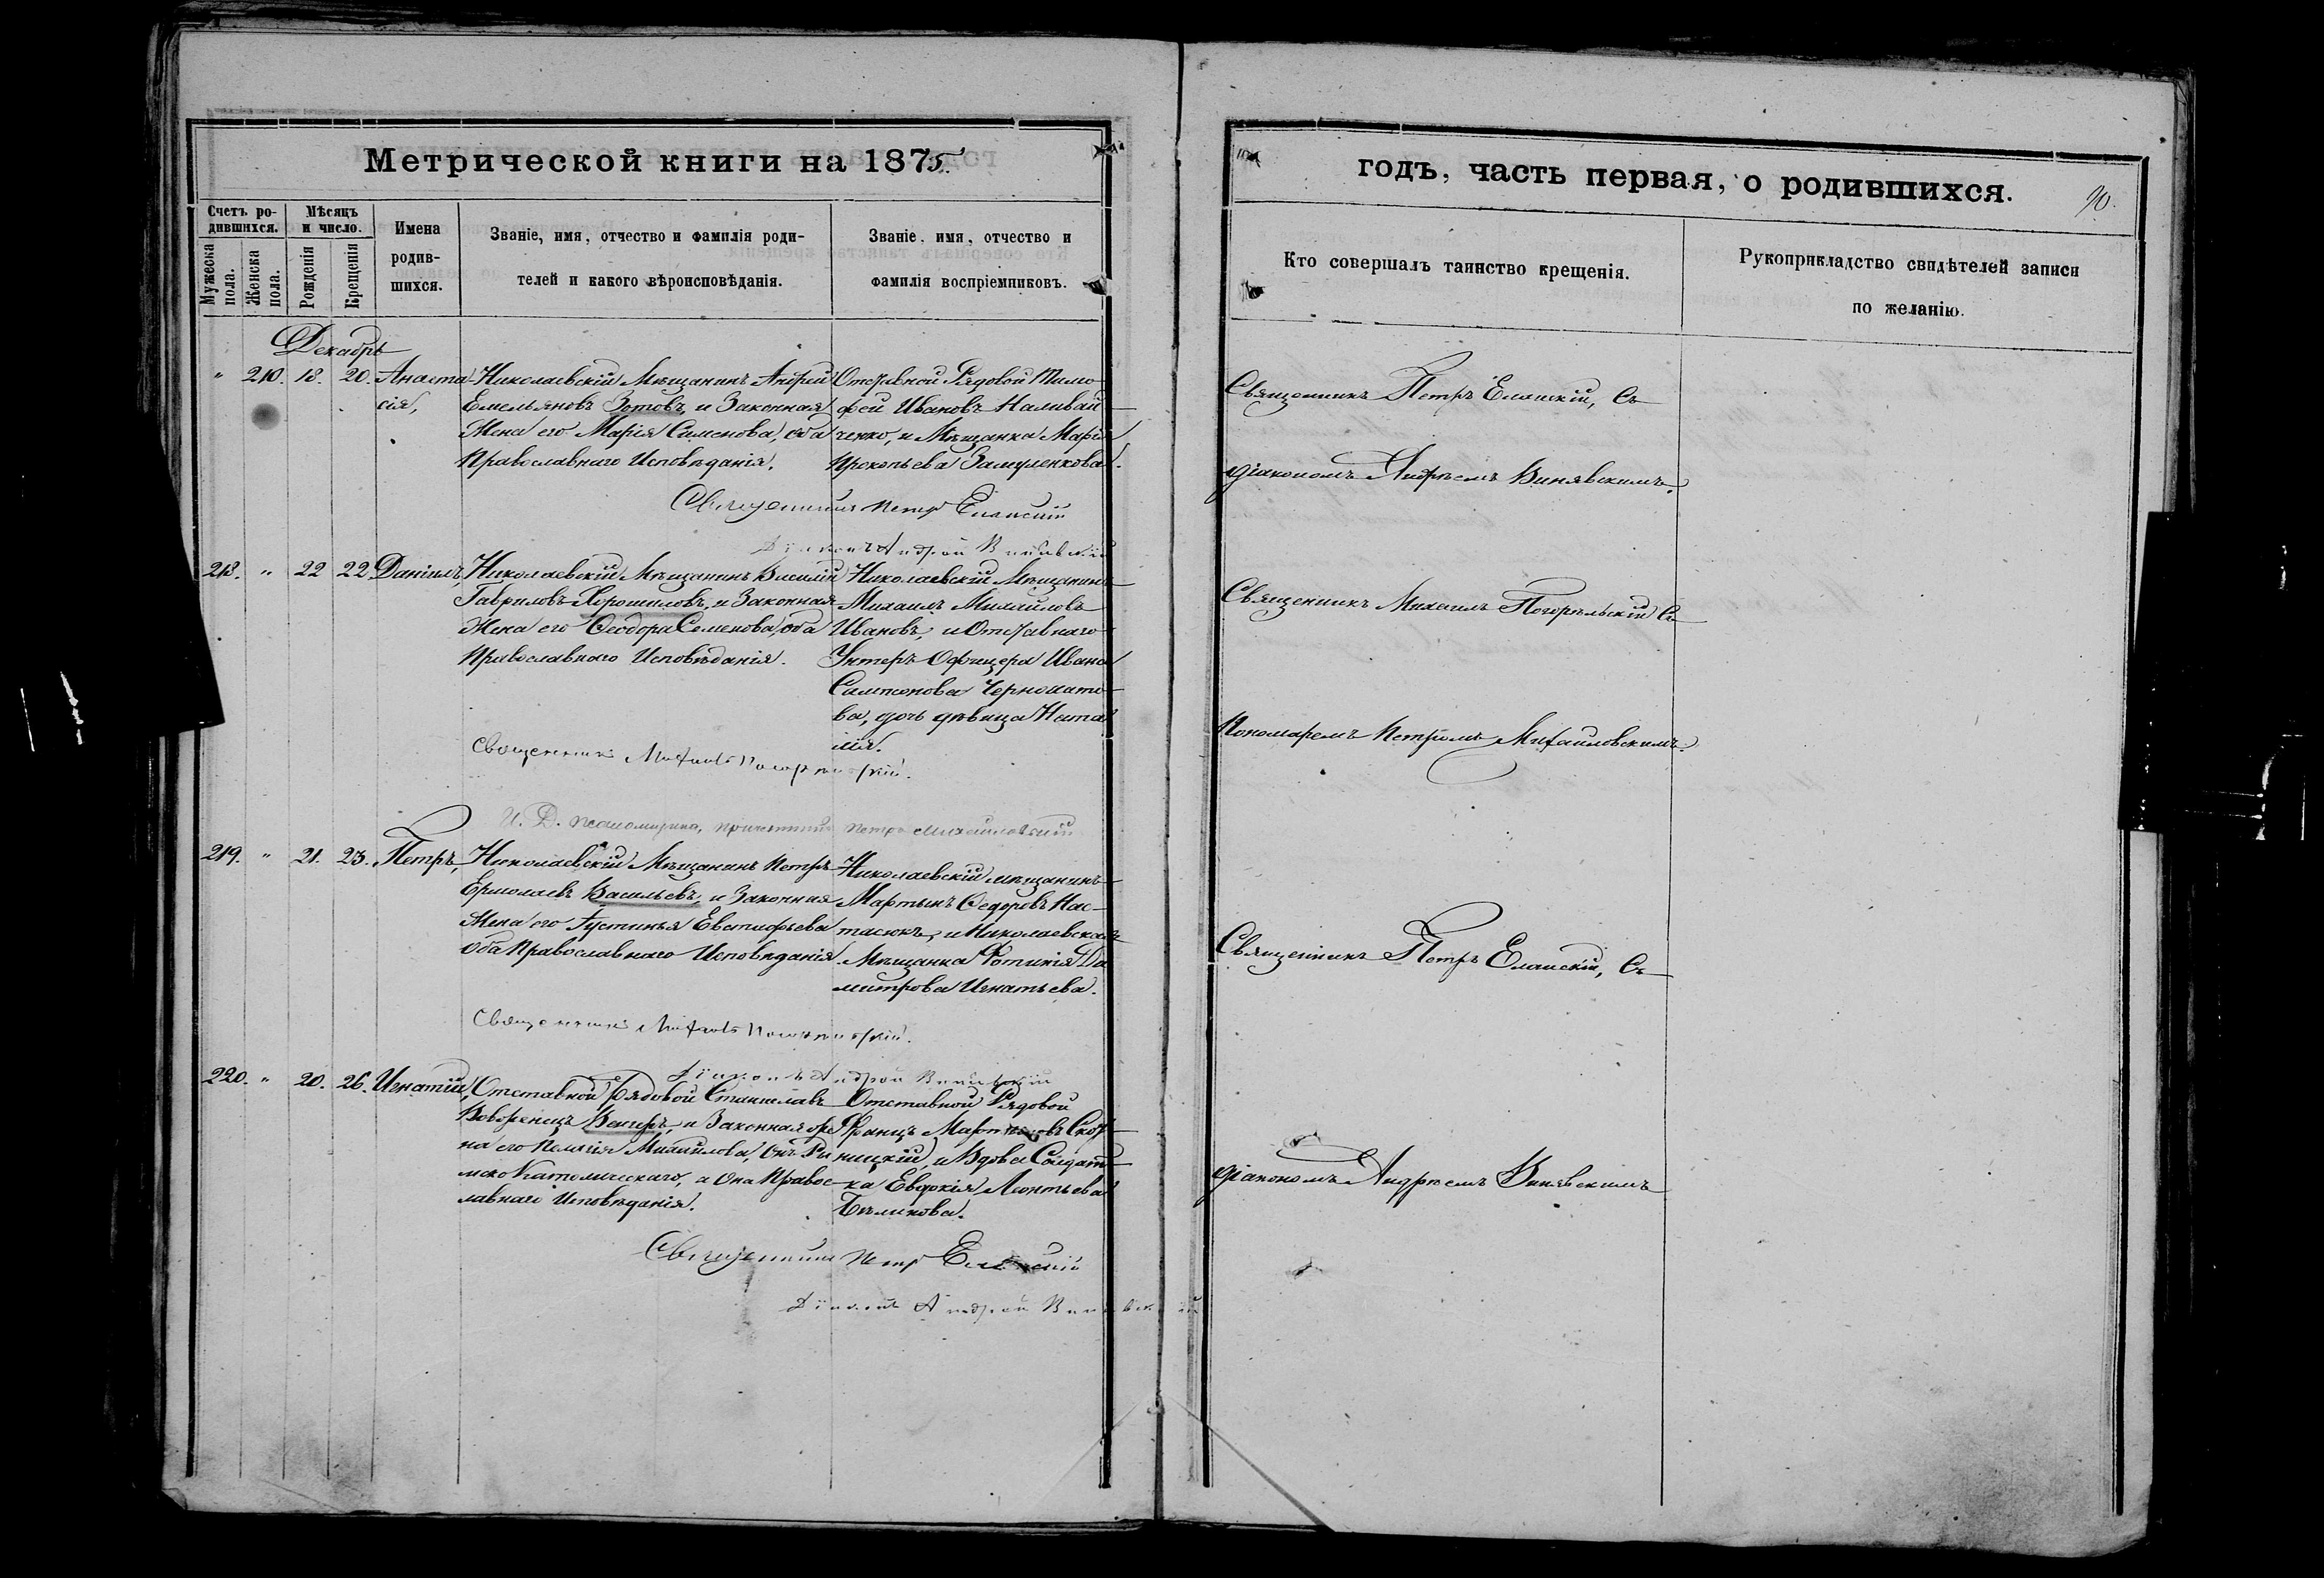 Метрической книги на 1875.
годъ, часть первая, о родившихся.
90.
Счетъ ро-
дившихся.
Мужеска
пола.
Женска
пола.
Мѣсяцъ
и число.
Рожденія
Крещенія
Имена
родив-
шихся.
Званіе, имя, отчество и фамилія роди-
телей и какого вѣроисповѣданія.
Званіе, имя, отчество и
фамилія воспріемниковъ.
Кто совершалъ таинство крещенія.
Рукоприкладство свидѣтелей записи
по желанію.
Декабрь
" 210. 18. 20. Анаста-
сія,
Николаевскій Мѣщанинъ Андрей
Емельяновъ Зотовъ, и Законная
Жена его Марія Сименова, оба
Православнаго Исповѣданія.
Отставной Рядовой Тимо-
фей Ивановъ Наливай-
ченко, и Мѣщанка Марія
Прокопьева Замуленкова.
Священникъ Петръ Еланскій, Съ
діакономъ Андреемъ Винявскимъ.
Священникъ Петръ Еланскій
Діаконъ Андрей Винявскій
218. " 22 22 Даніилъ,
Николаевскій Мѣщанинъ Василій
Гавриловъ Хорошиловъ, и Законная
Жена его Феодора Семенова, оба
Православнаго Исповѣданія.
Николаевскій Мѣщанинъ
Михаилъ Михайловъ
Ивановъ, и Отставнаго
Унтеръ-Офицера Ивана
Сампсонова
ва, дочь дѣвица Ната-
лія.
Священникъ Михаилъ Погорѣльскій Съ
Пономаремъ Петромъ Михайловскимъ.
Священникъ Михаилъ Погорѣльскій.
И. Д. Пономаря, причетникъ Петръ Михайловскій
219. " 21. 23. Петръ,
Николаевскій Мѣщанинъ Петръ
Ермолаевъ Васильевъ, и Законная
Жена его Іустинья Евстафьева
Оба Православнаго Исповѣданія.
Николаевскій мѣщанинъ
Мартынъ Федоровъ Нас-
тасюкъ, и Николаевская
Мѣщанка Фотинія Ди-
митрова Игнатьева.
Священникъ Петръ Еланскій, Съ
Священникъ Михаилъ Погорѣльскій.
Діаконъ Андрей Винявскій
220. " 20. 26. Игнатій,
Отставной Рядовой Станиславъ
Венгеръ, и Законная же-
на его Пелагія Михайлова, Онъ Ри-
мско Католическаго, а Она Правос-
лавнаго Исповѣданія.
Отставной Рядовой
Францъ
ницкій, и Вдова Солдат-
ка Евдокія Леонтьева
Бѣликова.
діакономъ Андреемъ Винявскимъ
Священникъ Петръ Еланскій
Діаконъ Андрей Винявскій